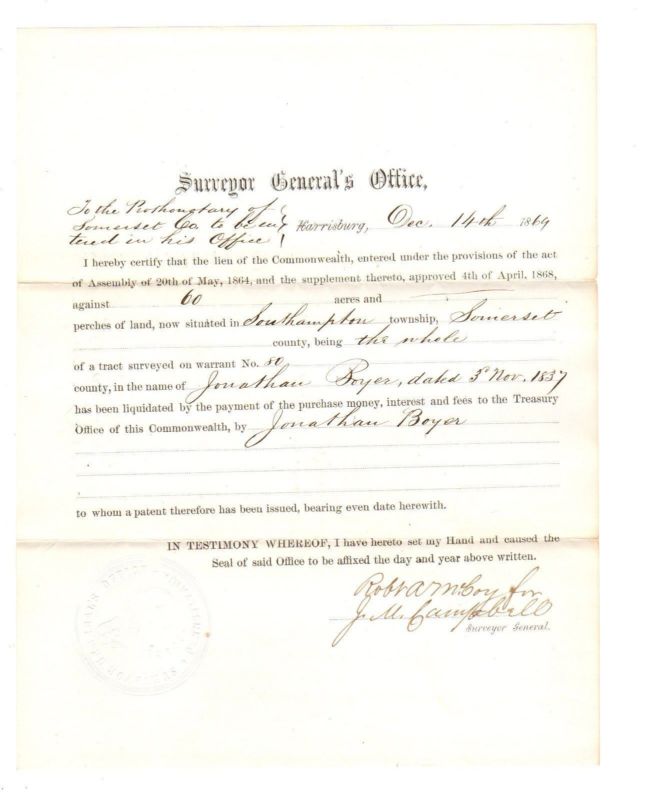 Surveyor General's Office,
To the Prothonotary of
Somerset Co. to be en
tered in his Office
Harrisburg, Dec. 14th 1869
I hereby certify that the lien of the Commonwealth, entered under the provisions of the act
of Assembly of 20th of May, 1864, and the supplement thereto, approved 4th of April, 1868,
against 60 acres and
perches of land, now situated in Southampton township, Somerset
county, being the whole
of a tract surveyed on warrant No. 80
county, in the name of Jonathan Boyer, dated 3d Nov. 1837
has been liquidated by the payment of the purchase money, interest and fees to the Treasury
Office of this Commonwealth, by Jonathan Boyer
to whom a patent therefore has been issued, bearing even date herewith.
IN TESTIMONY WHEREOF, I have hereto set my Hand and caused the
Seal of said Office to be affixed the day and year above written.
Robt A McCoy for
J. M. Campbell
Surveyor General.